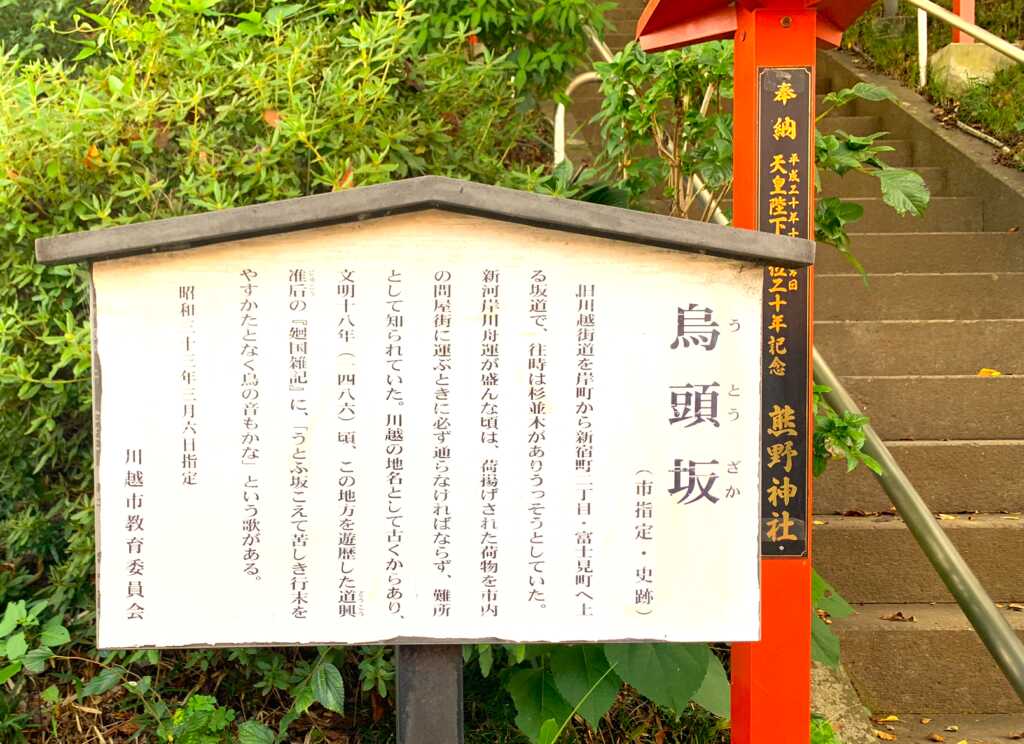 奉納
平成二十年十
天皇陛下
位二十年記念
熊野神社
烏頭坂
うとうざか
(市指定・史跡)
旧川越街道を岸町から新宿町二丁目・富士見町へ上
る坂道で、往時は杉並木がありうっそうとしていた。
新河岸川舟運が盛んな頃は、荷揚げされた荷物を市内
の問屋街に運ぶときに必ず通らなければならず、難所
として知られていた。川越の地名として古くからあり、
文明十八年(一四八六)頃、この地方を遊歴した道興
准后の『廻国雑記』に、「うとふ坂こえて苦しき行末を
やすかたとなく鳥の音もかな」という歌がある。
昭和三十三年三月六日指定
川越市教育委員会